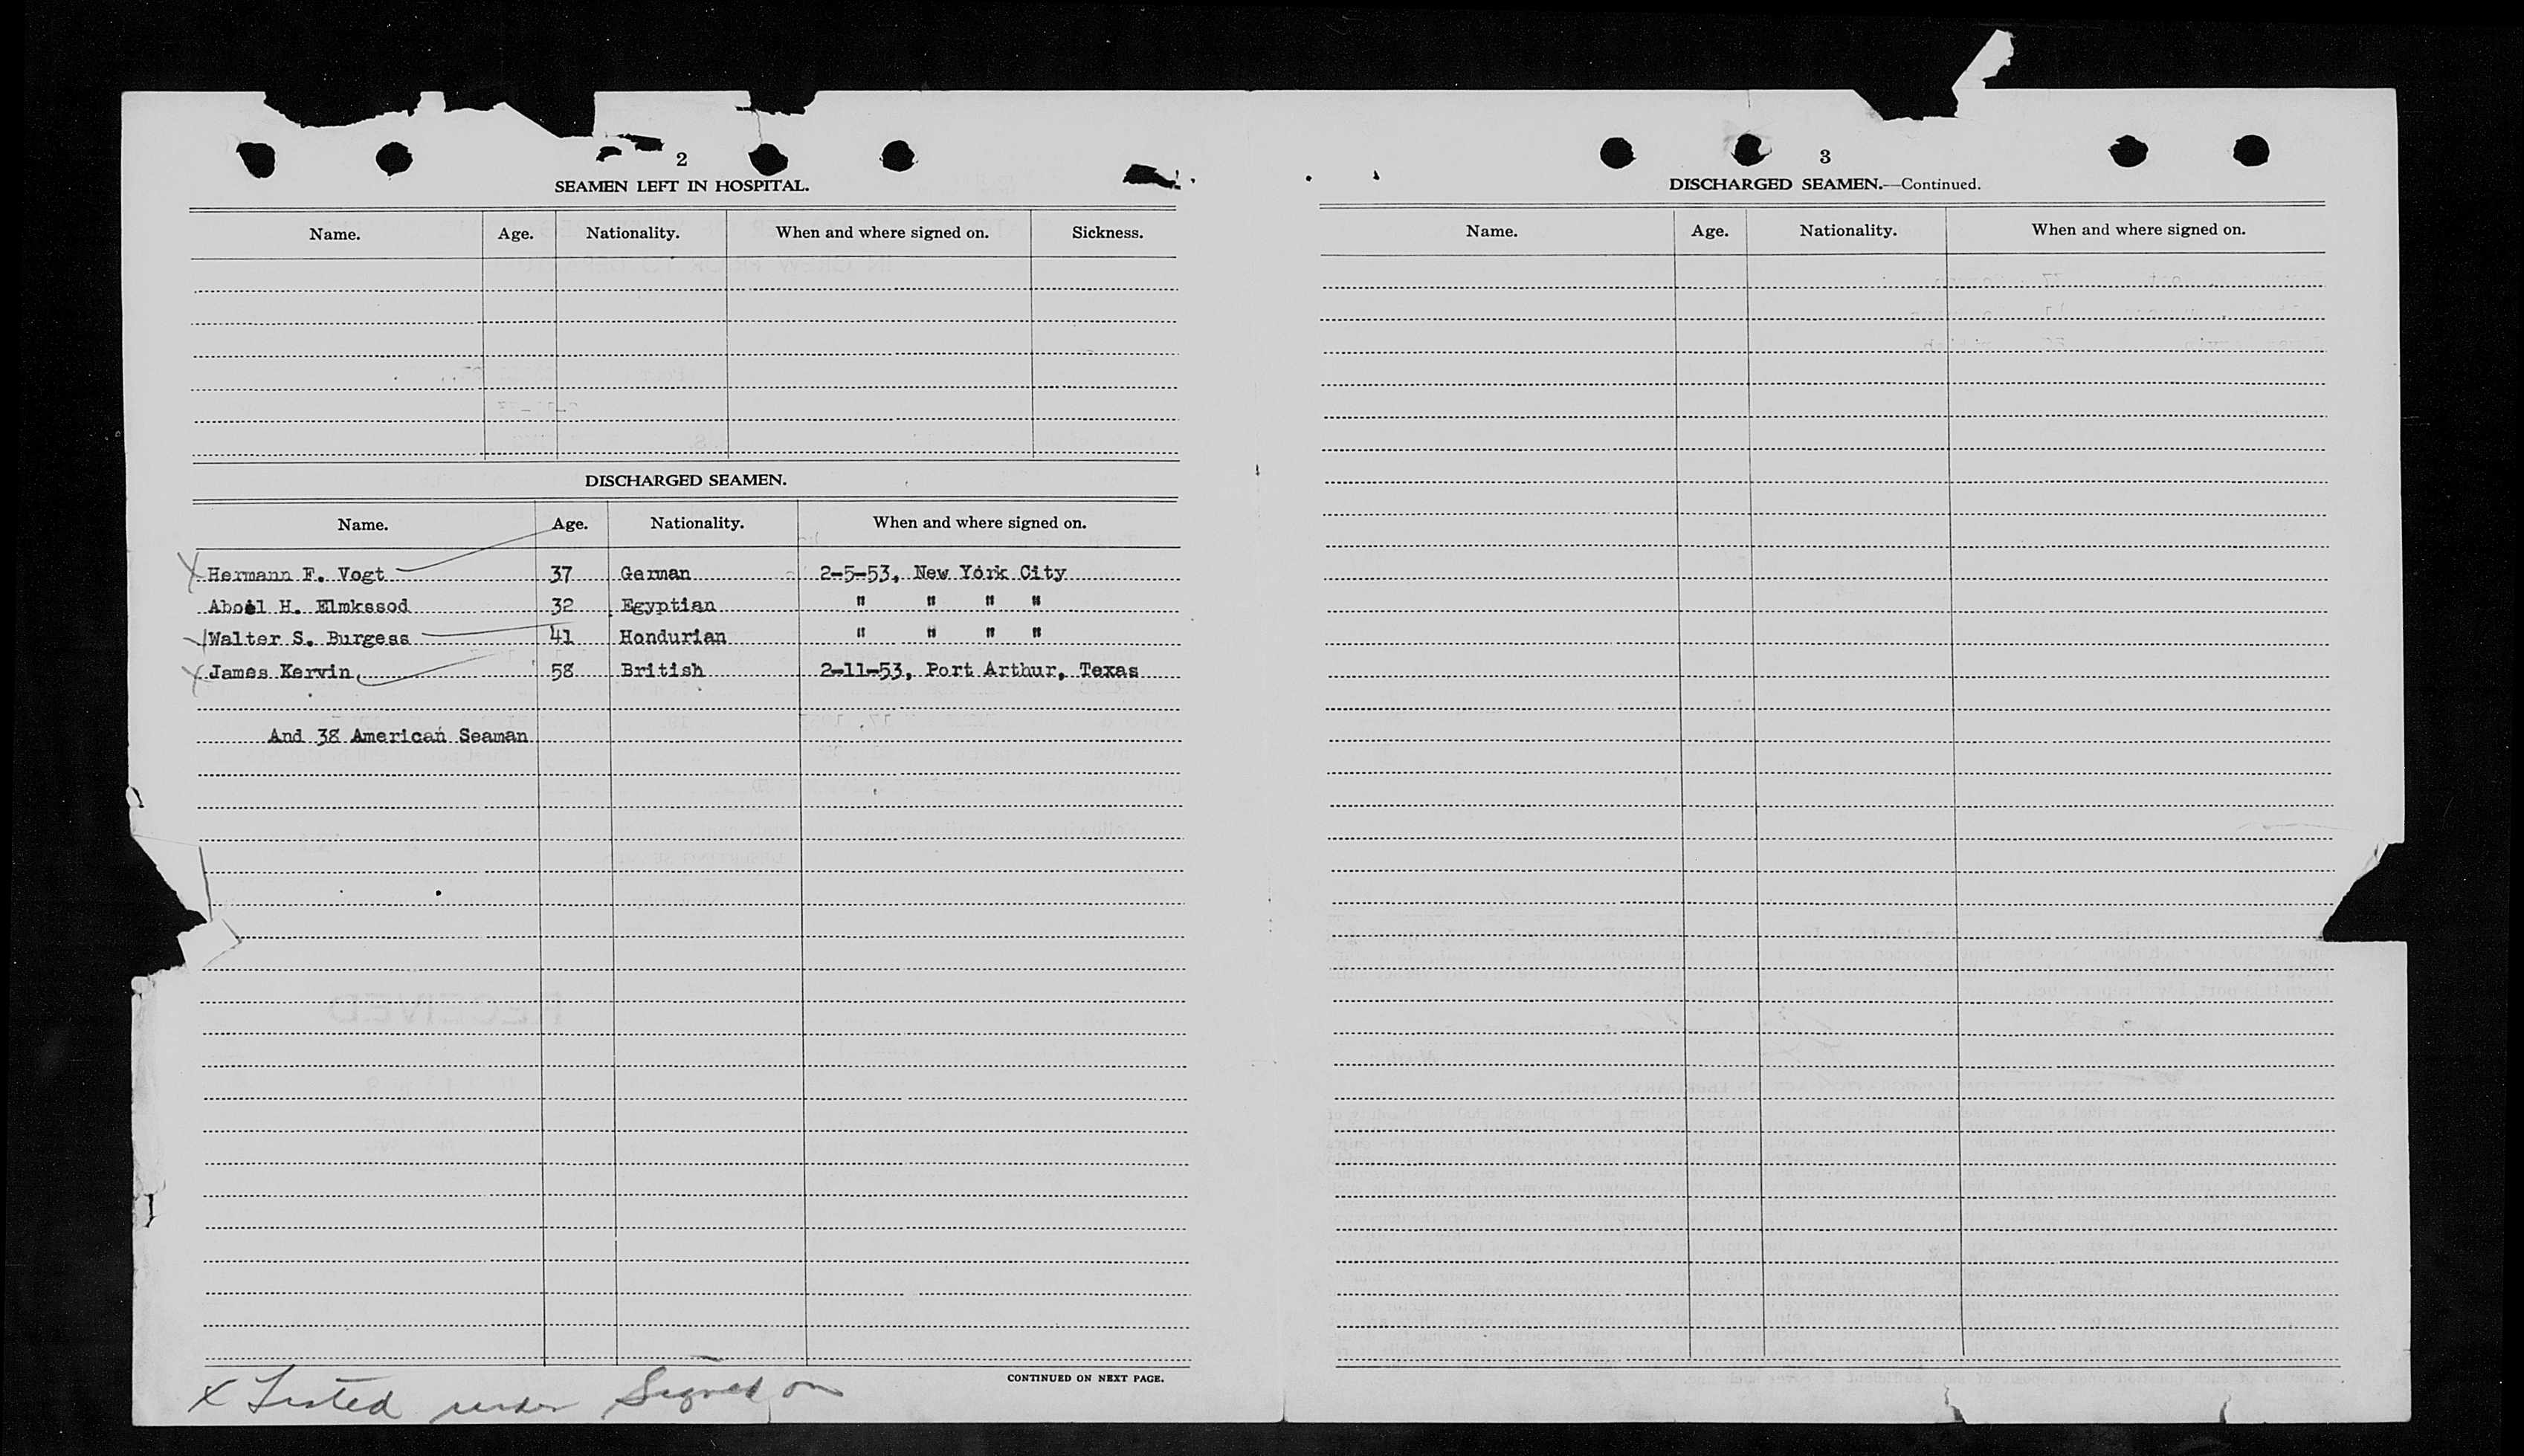 2
SEAMEN LEFT IN HOSPITAL.
Name. Age. Nationality. When and where signed on. Sickness.
DISCHARGED SEAMEN.
Name. Age. Nationality. When and where signed on.
X Hermann F. Vogt 37 German 2-5-53, New York City
H. Elmkssod 32 Egyptian " " " "
Walter S. Burgess 41 Hondurian " " " "
X James Kervin 58 British 2-11-53, Port Arthur, Texas
And 38 American Seaman
CONTINUED ON NEXT PAGE.
x Listed under Signed on
3
DISCHARGED SEAMEN.—Continued.
Name. Age. Nationality. When and where signed on.
RECEIVED